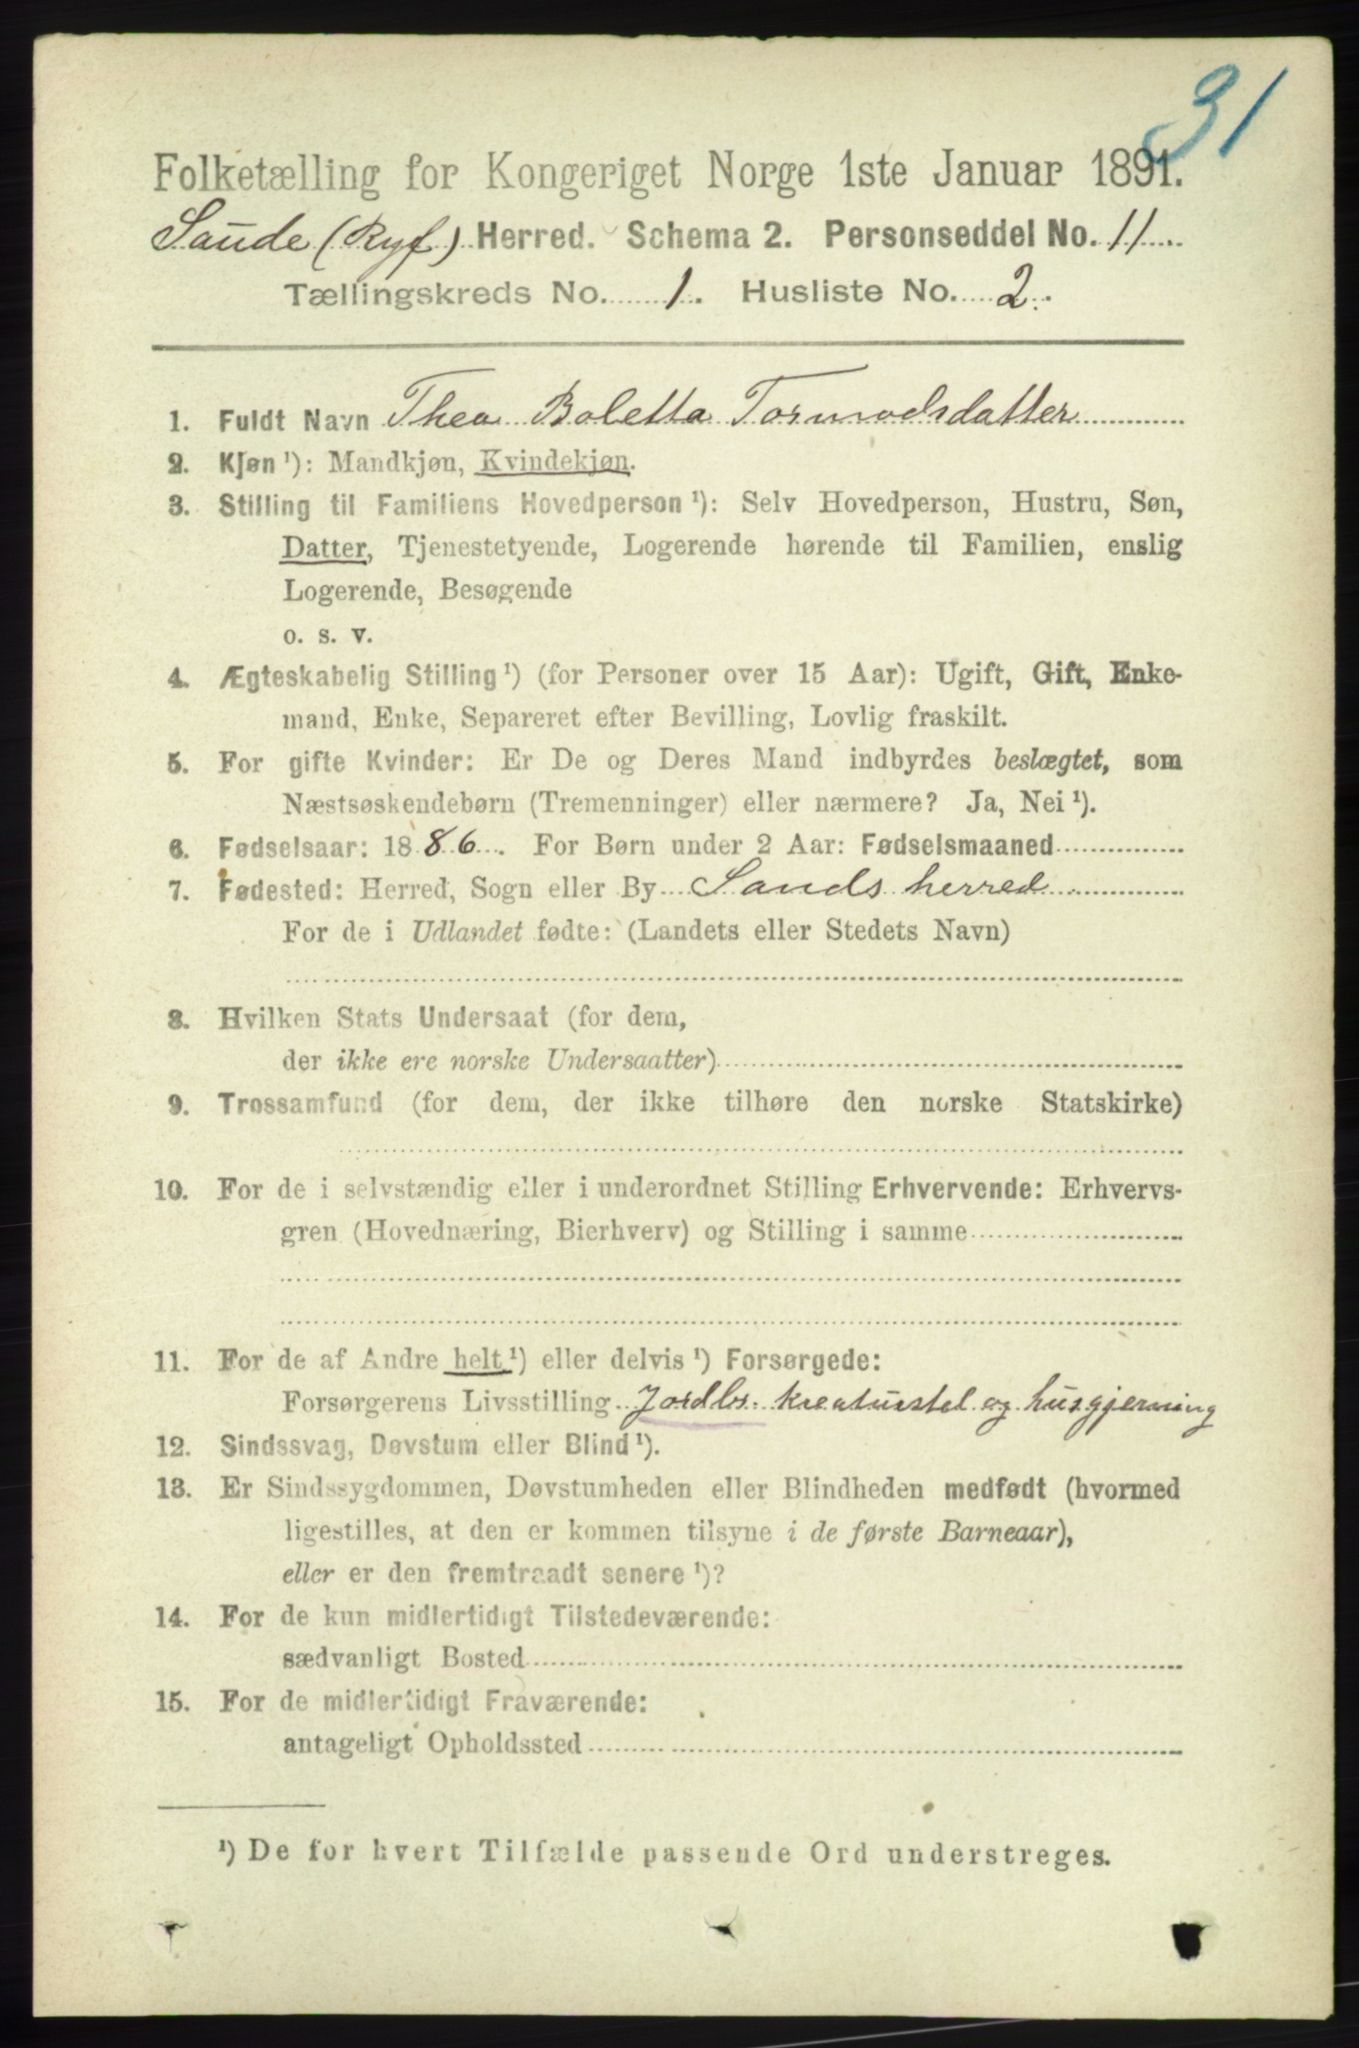 31
Folketælling for Kongeriget Norge 1ste Januar 1891.
Saude (Ryf.) Herred. Schema 2. Personseddel No. 11
Tællingskreds No. 1. Husliste No. 2.
1. Fuldt Navn Thea Boletta Tormodsdatter
2. Kjøn¹): Mandkjøn, Kvindekjøn.
3. Stilling til Familiens Hovedperson¹): Selv Hovedperson, Hustru, Søn,
Datter, Tjenestetyende, Logerende hørende til Familien, enslig
Logerende, Besøgende
o. s. v.
4. Ægteskabelig Stilling¹) (for Personer over 15 Aar): Ugift, Gift, Enke-
mand, Enke, Separeret efter Bevilling, Lovlig fraskilt.
5. For gifte Kvinder: Er De og Deres Mand indbyrdes beslægtet, som
Næstsøskendebørn (Tremenninger) eller nærmere? Ja, Nei¹).
6. Fødselsaar: 1886. For Børn under 2 Aar: Fødselsmaaned
7. Fødested: Herred, Sogn eller By Sands herred
For de i Udlandet fødte: (Landets eller Stedets Navn)
8. Hvilken Stats Undersaat (for dem,
der ikke ere norske Undersaatter)
9. Trossamfund (for dem, der ikke tilhøre den norske Statskirke)
10. For de i selvstændig eller i underordnet Stilling Erhvervende: Erhvervs-
gren (Hovednæring, Bierhverv) og Stilling i samme
11. For de af Andre helt¹) eller delvis¹) Forsørgede:
Forsørgerens Livsstilling Jordbr. kreaturstel og husgjerning
12. Sindssvag, Døvstum eller Blind¹).
13. Er Sindssygdommen, Døvstumheden eller Blindheden medfødt (hvormed
ligestilles, at den er kommen tilsyne i de første Barneaar),
eller er den fremtraadt senere¹)?
14. For de kun midlertidigt Tilstedeværende:
sædvanligt Bosted
15. For de midlertidigt Fraværende:
antageligt Opholdssted
¹) De for hvert Tilfælde passende Ord understreges.